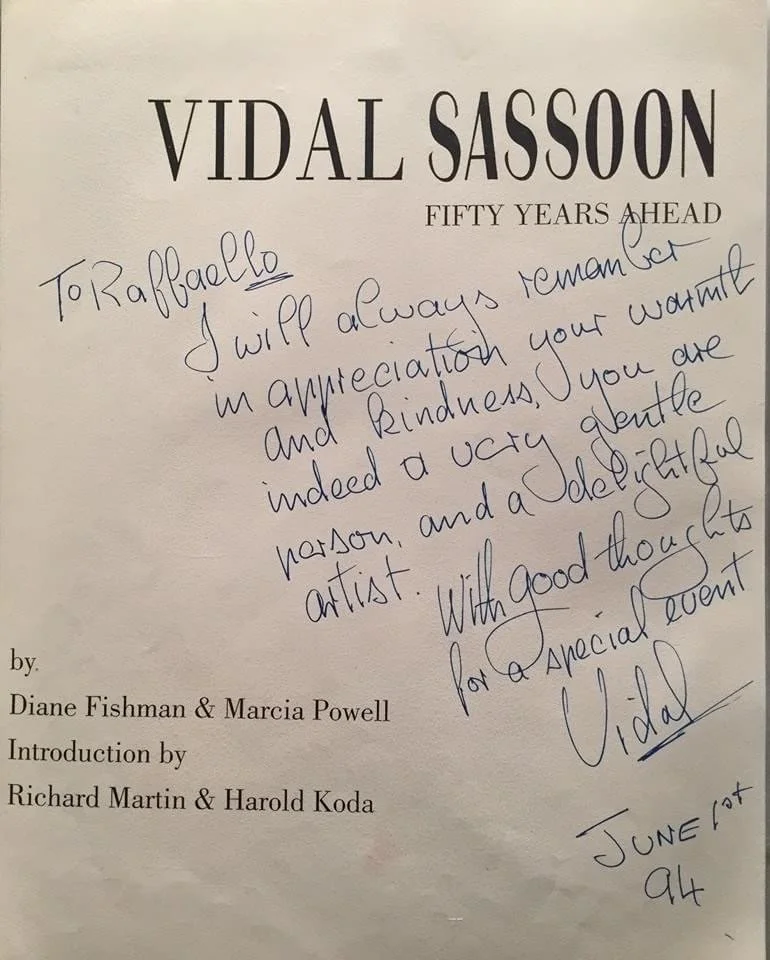 VIDAL SASSOON
FIFTY YEARS AHEAD
To Raffaello
I will always remember
in appreciation your warmth
and kindness, you are
indeed a very gentle
person, and a delightful
artist. With good thoughts
for a special event
Vidal
JUNE 1st
94
by.
Diane Fishman & Marcia Powell
Introduction by
Richard Martin & Harold Koda